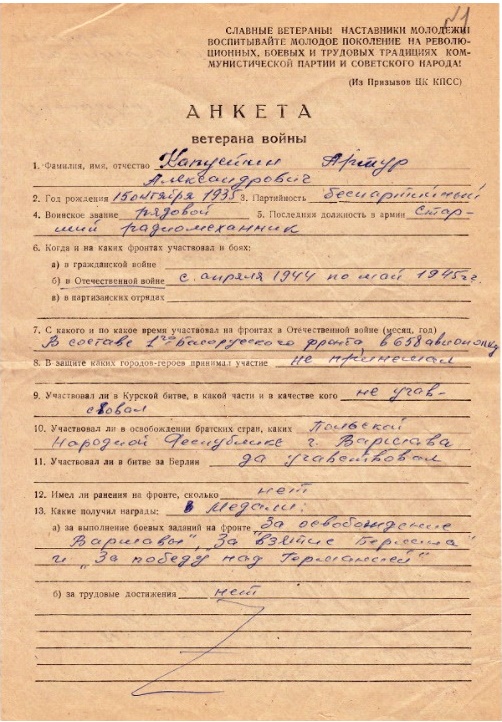 №1
СЛАВНЫЕ ВЕТЕРАНЫ! НАСТАВНИКИ МОЛОДЕЖИ!
ВОСПИТЫВАЙТЕ МОЛОДОЕ ПОКОЛЕНИЕ НА РЕВОЛЮ-
ЦИОННЫХ, БОЕВЫХ И ТРУДОВЫХ ТРАДИЦИЯХ КОМ-
МУНИСТИЧЕСКОЙ ПАРТИИ И СОВЕТСКОГО НАРОДА!
(Из Призывов ЦК КПСС)
АНКЕТА
ветерана войны
1. Фамилия, имя, отчество Капустин Артур
Александрович
2. Год рождения 15 октября 1935 3. Партийность беспартийный
4. Воинское звание рядовой 5. Последняя должность в армии Стар-
ший радиомеханник
6. Когда и на каких фронтах участвовал в боях:
а) в гражданской войне
б) в Отечественной войне с апреля 1944 по май 1945гг.
в) в партизанских отрядах
7. С какого и по какое время участвовал на фронтах в Отечественной войне (месяц, год)
В составе 1го Белорусского фронта в 658 авиополку
8. В защите каких городов-героев принимал участие не принемал
9. Участвовал ли в Курской битве, в какой части и в качестве кого не учав-
ствовал
10. Участвовал ли в освобождении братских стран, каких Польской
Народной Республике г. Варшава
11. Участвовал ли в битве за Берлин да учавствовал
12. Имел ли ранения на фронте, сколько нет
13. Какие получил награды: Медали:
а) за выполнение боевых заданий на фронте "За освобождение
Варшавы", За "взятие Берлина"
и "За победу над Германией"
б) за трудовые достижения нет